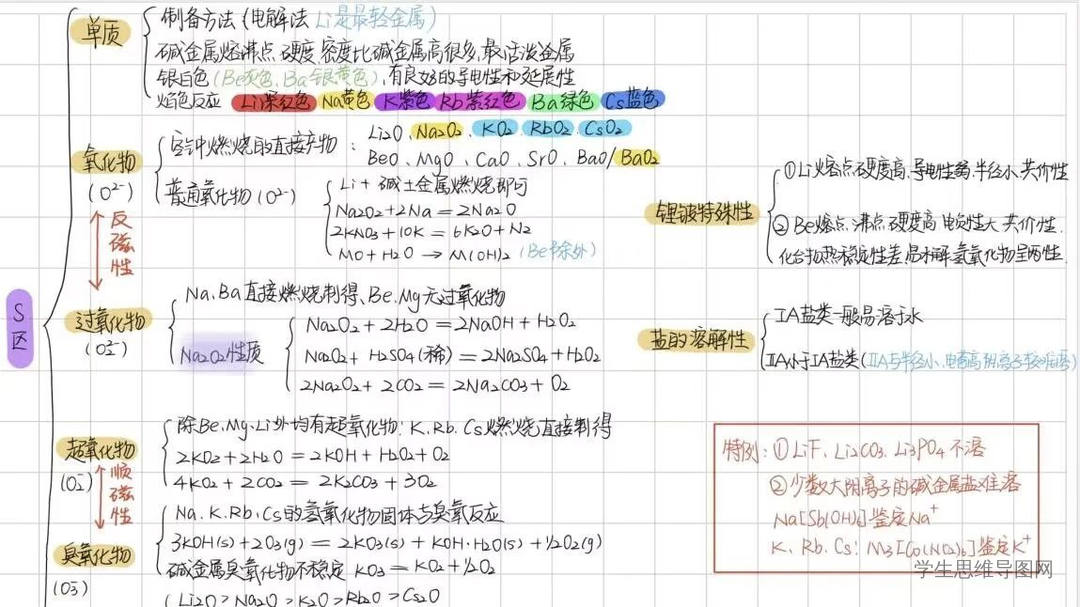 S区
单质
制备方法(电解法 Li是最轻金属)
碱金属熔沸点、硬度、密度比碱金属高很多,最活泼金属
银白色(Be灰色、Ba银黄色),有良好的导电性和延展性
焰色反应 Li深红色 Na黄色 K紫色 Rb紫红色 Ba绿色 Cs蓝色
氧化物
(O²⁻)
空气中燃烧的直接产物:Li2O、Na2O2、KO2、RbO2、CsO2
BeO、MgO、CaO、SrO、BaO/BaO2
普通氧化物(O²⁻)
Li+碱土金属燃烧即可
Na2O2+2Na=2Na2O
2KNO3+10K=6K2O+N2
MO+H2O→M(OH)2 (Be除外)
反磁性
过氧化物
(O2²⁻)
Na、Ba直接燃烧制得、Be、Mg无过氧化物
Na2O2性质
Na2O2+2H2O=2NaOH+H2O2
Na2O2+H2SO4(稀)=2Na2SO4+H2O2
2Na2O2+2CO2=2Na2CO3+O2
超氧化物
(O2⁻)
除Be、Mg、Li外均有超氧化物:K、Rb、Cs燃烧直接制得
2KO2+2H2O=2KOH+H2O2+O2
4KO2+2CO2=2K2CO3+3O2
顺磁性
臭氧化物
(O3⁻)
Na、K、Rb、Cs的氢氧化物固体与臭氧反应
3KOH(s)+2O3(g)=2KO3(s)+KOH·H2O(s)+1/2O2(g)
碱金属臭氧化物不稳定 KO3=KO2+1/2O2
Li2O>Na2O>K2O>Rb2O>Cs2O
锂铍特殊性
①Li熔点、硬度高、导电性弱、半径小、共价性
②Be熔点、沸点、硬度高、电负性大、共价性.
化合物热稳定性差、易水解、氢氧化物呈两性.
盐的溶解性
IA盐类一般易溶于水
IIA小于IA盐类(IIA与半径小、电荷高阴离子较难溶)
特例:①LiF、Li2CO3、Li3PO4不溶
②少数大阴离子的碱金属盐难溶
Na[Sb(OH)6]鉴定Na⁺
K、Rb、Cs:M3[Co(NO2)6]鉴定K⁺
学生思维导图网